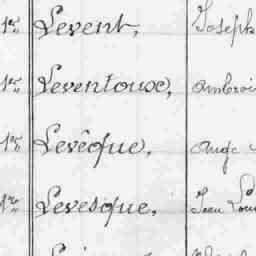 1re Levent, Joseph
1re Leventoux, Ambroi
1re Levêque, Ange
1re Levesque, Jean Lou